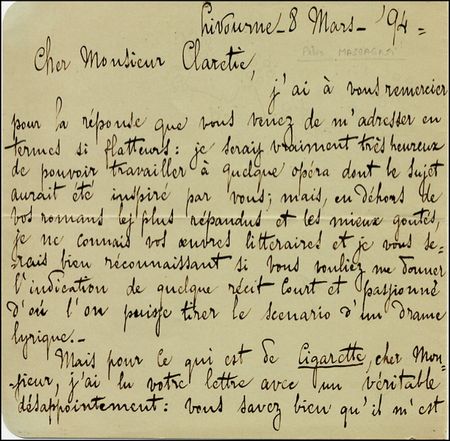 Livourne - 8 Mars - '94 =
Pietro MASCAGNI
Cher Monsieur Claretie,
j'ai à vous remercier
pour la réponse que vous venez de m'adresser en
termes si flatteurs: je seray vraiment très heureux
de pouvoir travailler à quelque opéra dont le sujet
aurait été inspiré par vous; mais, en déhors de
vos romans les plus répandus et les mieux goutés,
je ne connais vos œuvres litteraires et je vous se-
-rais bien réconnaissant si vous vouliez me donner
l'indication de quelque récit court et passionné
d'où l'on puisse tirer le scenario d'un drame
lyrique. -
Mais pour ce qui est de Cigarette, cher Mon-
-sieur, j'ai lu votre lettre avec un véritable
désappointement: vous savez bien qu'il m'est